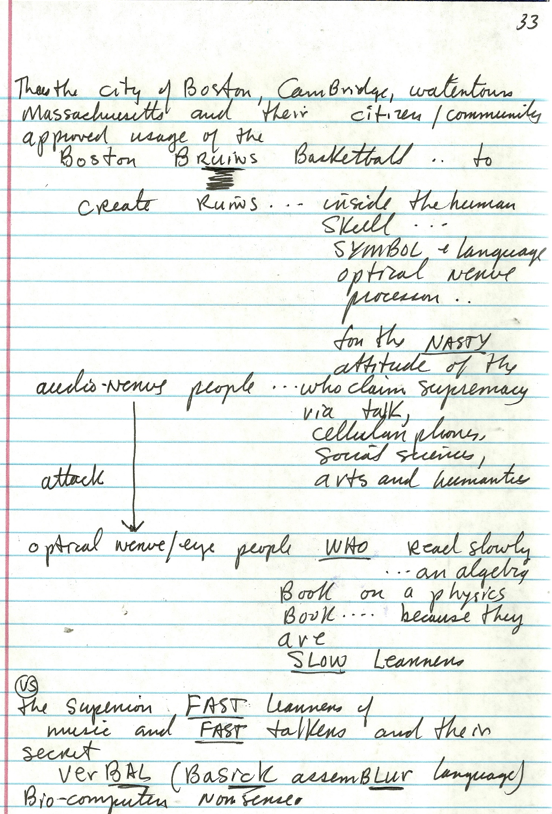 33
Thus the city of Boston, CamBridge, watertown
Massachusetts and their citizen/community
approved usage of the
Boston BRuiws Basketball .. to
create Ruiws ... inside the human
Skull ...
SYMBOL & language
optical nerve
processor ..
for the NASTY
attitude of the
audio-nerve people ... who claim supremacy
via talk,
cellular phones,
Social sciences,
attack arts and humanties
optical nerve/eye people WHO Read slowly
... an algebra
Book or a physics
Book .... because they
are
SLOW Learners
VS
the superior FAST learners of
music and FAST talkers and their
secret
VerBAL (BaSick assemBLUr language)
Bio-computer NonSense.